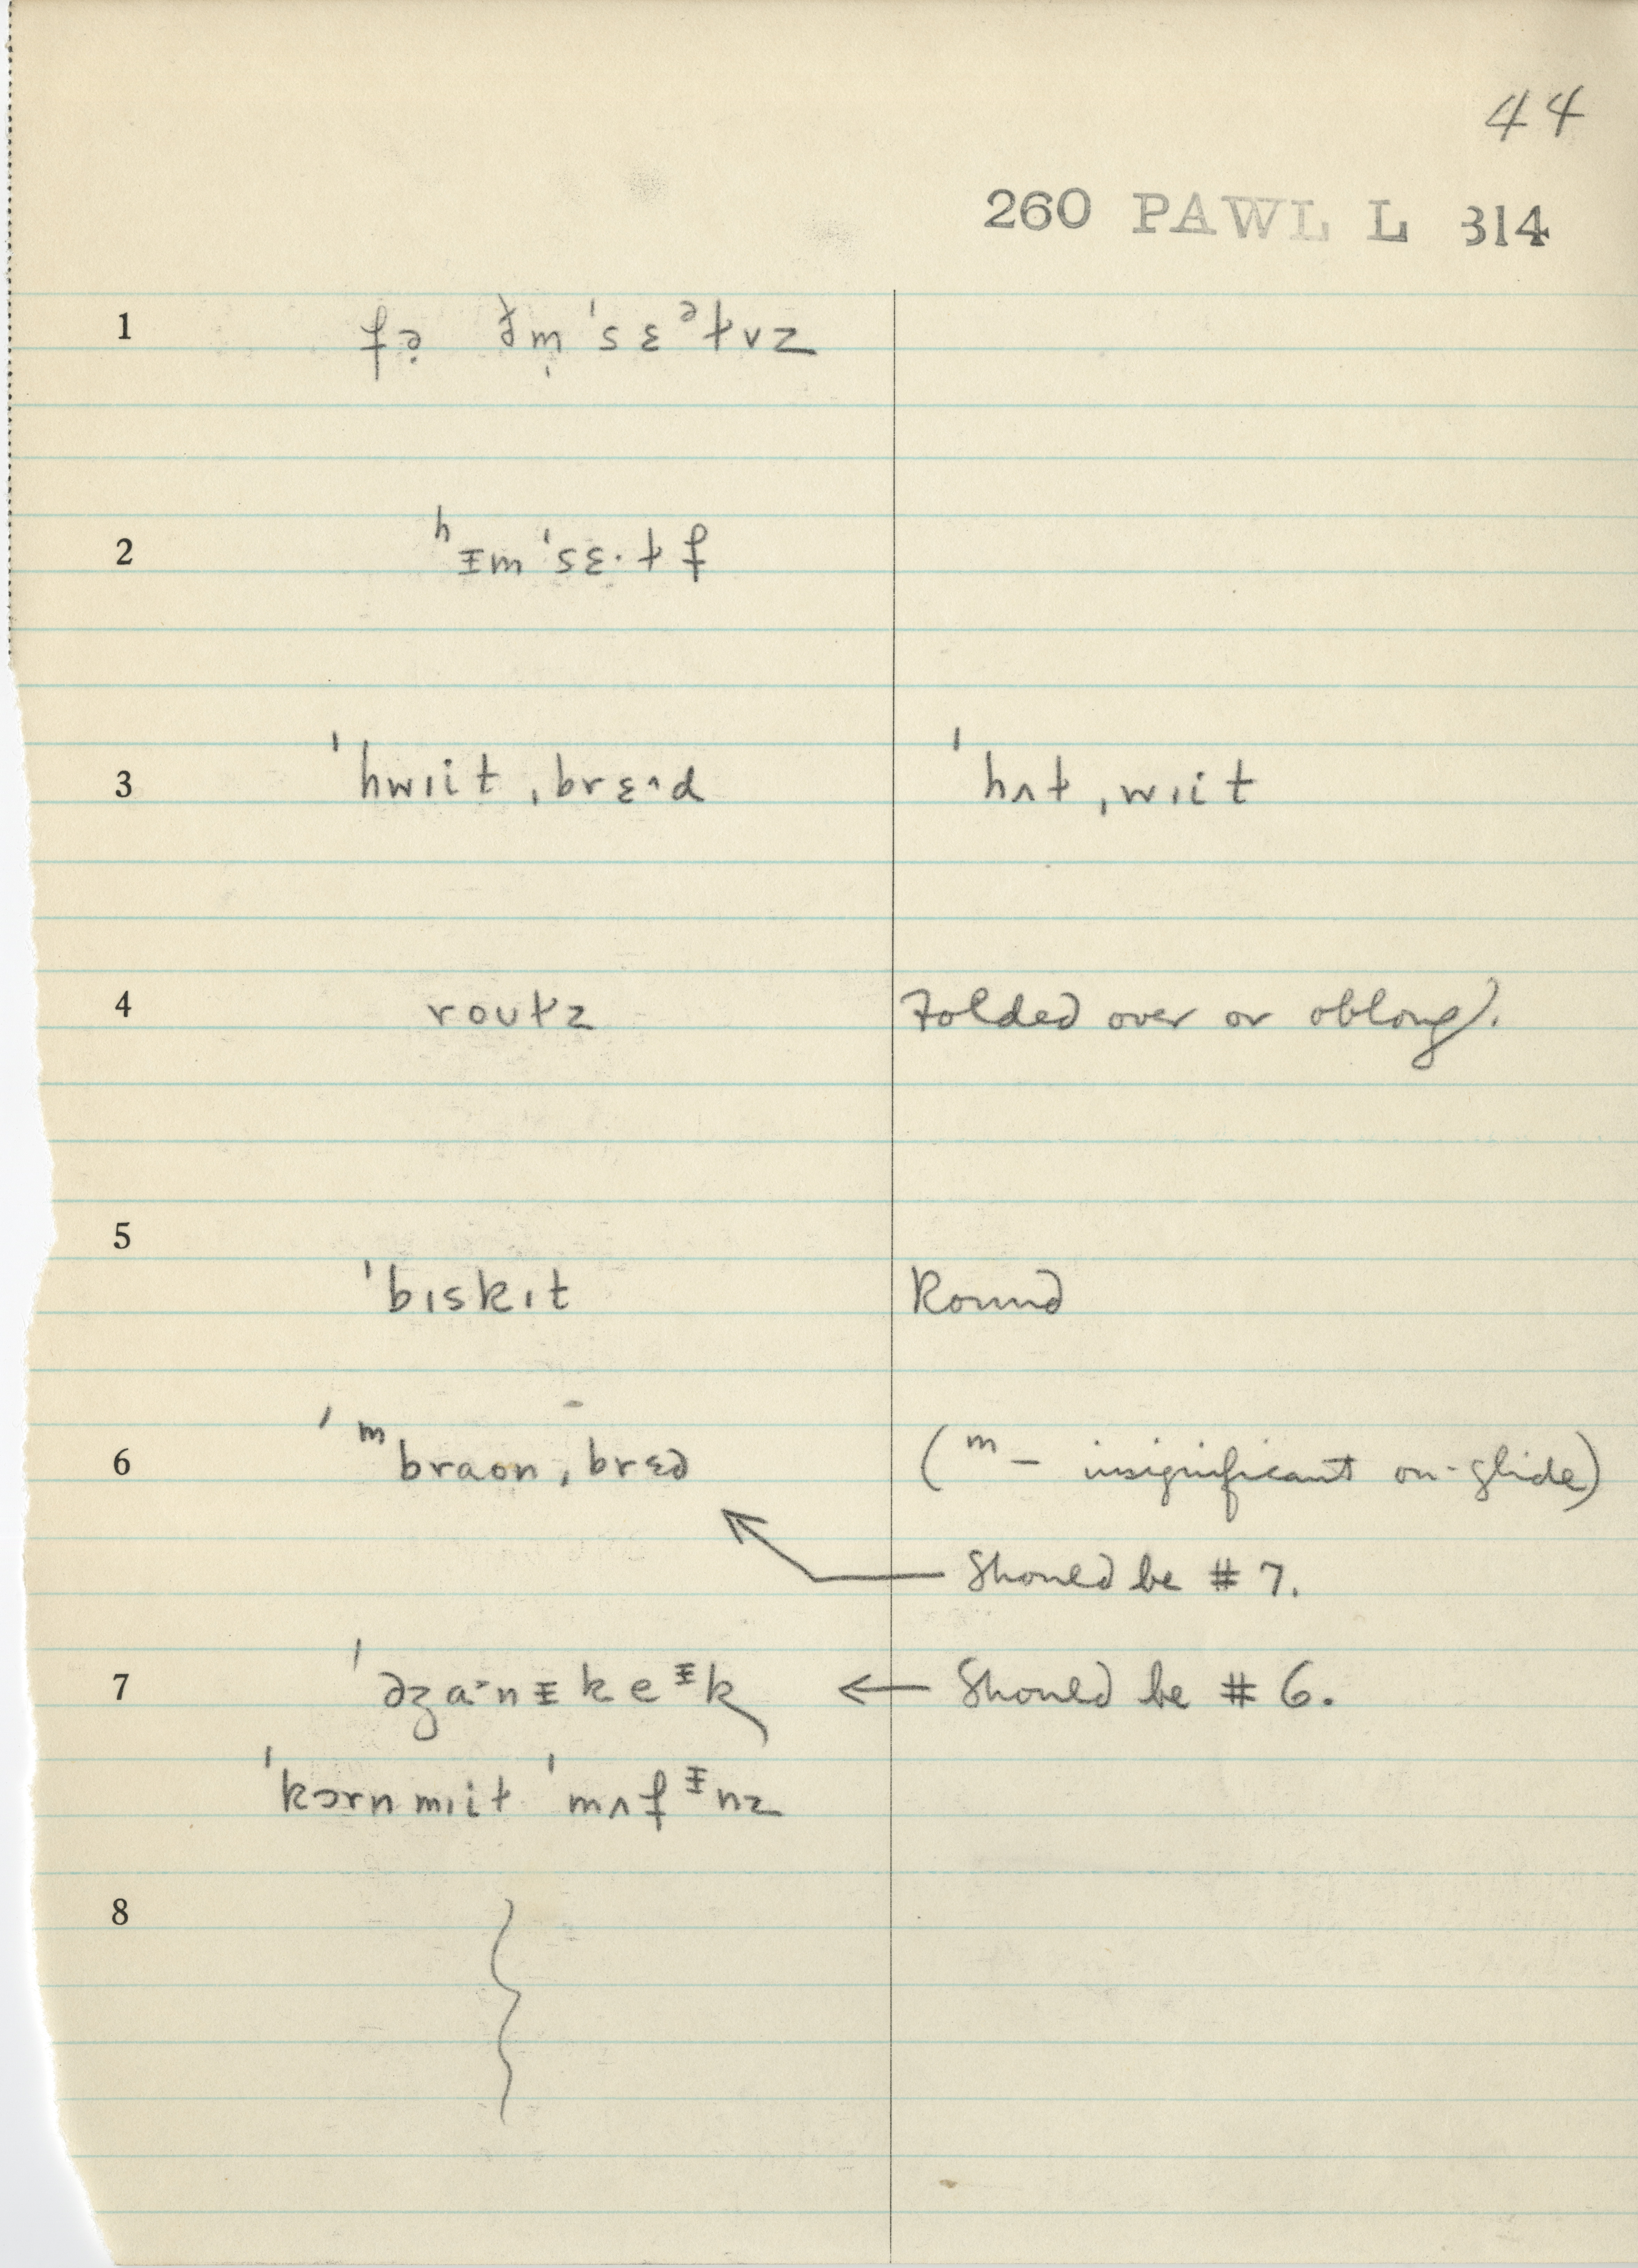 44
260 PAWL L 314
1 fə̣ ðm̩ ˈsɛᵊɫvz
2 ʰᵻm ˈsɛ·ɫf
3 ˈhwɪit ˌbrɛ^d ˈhʌɫ ˌwɪit
4 roʊɫz Folded over or oblong).
5 ˈbɪskɪt Round
6 ˈᵐbraon ˌbrɛd (ᵐ – insignificant on-glide)
Should be # 7.
7 ← Should be # 6.
ˈkɔrn mɪiɫ ˈmʌfᵻnz
8